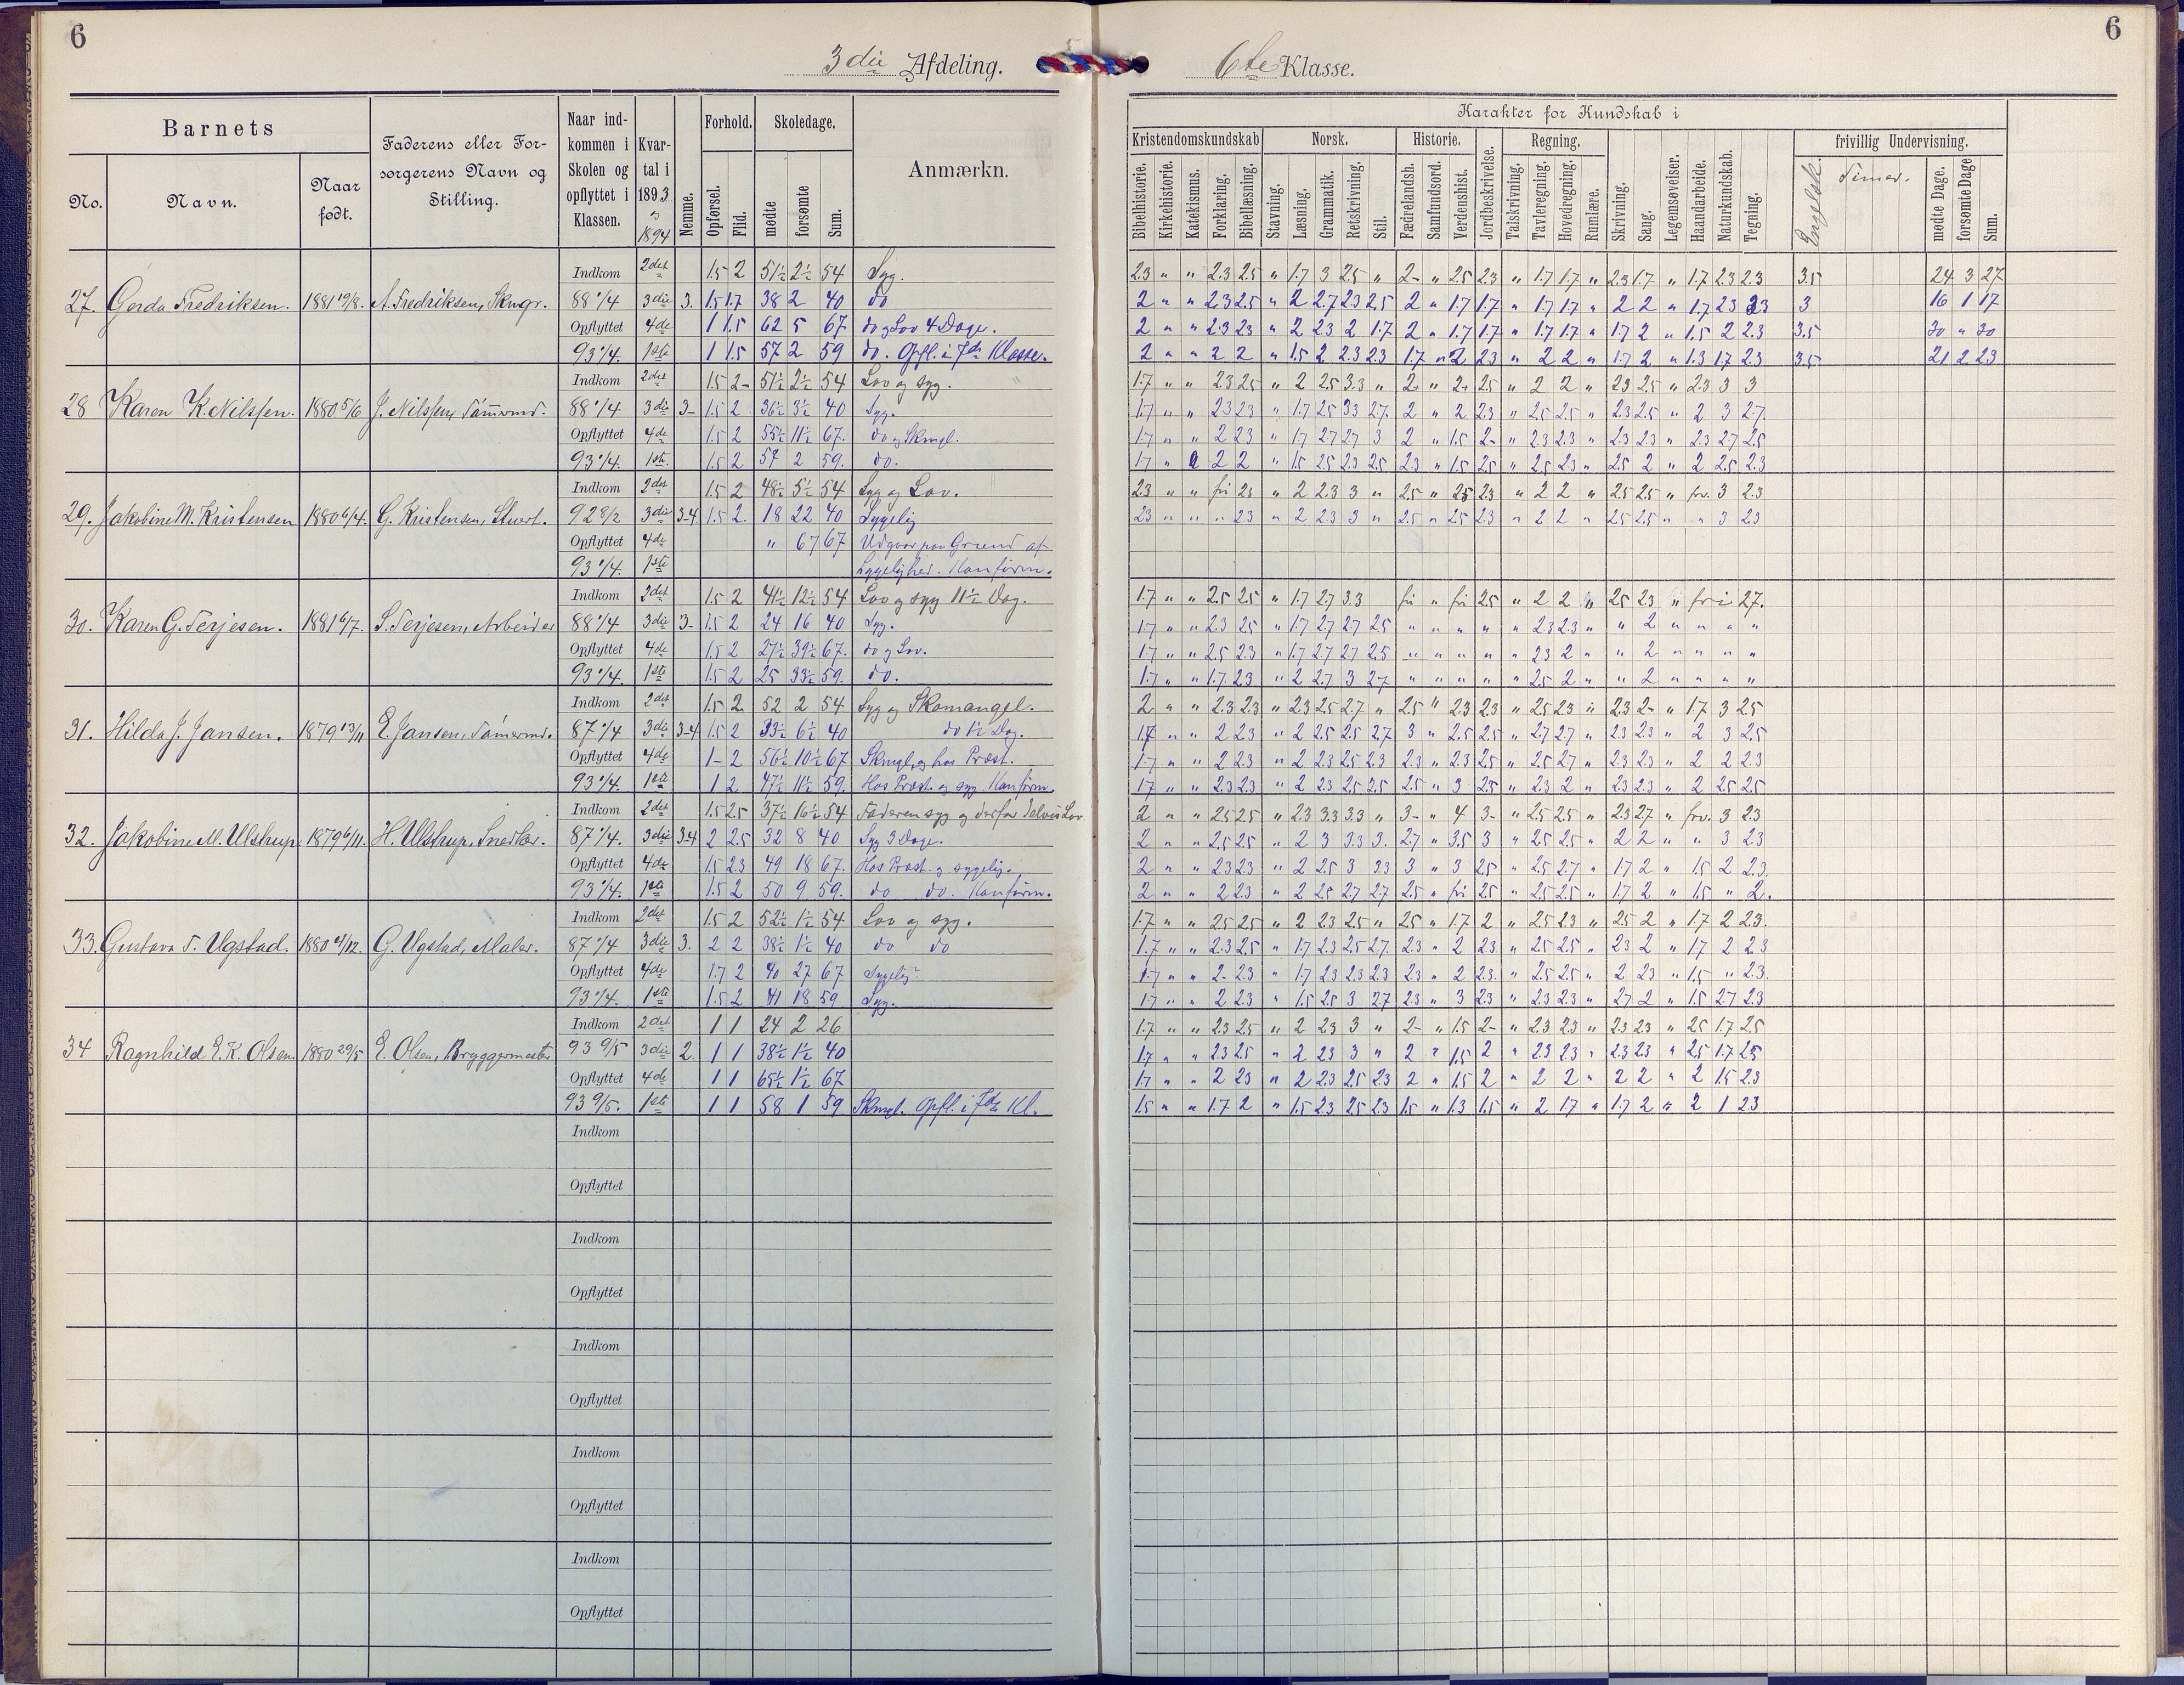 6
3die Afdeling.
6te Klasse.
6
Barnets
No.
Navn.
Naar født.
Faderens eller Forsørgerens Navn og Stilling.
Naar indkommen i Skolen og opflyttet i Klassen.
Kvartal i 1893 og 1894
Nemme.
Forhold.
Opførsel.
Flid.
Skoledage.
mødte
forsømte
Sum.
Anmærkn.
Karakter for Kundskab i
Kristendomskundskab
Bibelhistorie.
Kirkehistorie.
Katekismus.
Forklaring.
Bibellæsning.
Norsk.
Stavning.
Læsning.
Grammatik.
Retskrivning.
Stil.
Historie.
Fædrelandsh.
Samfundsord.
Verdenshist.
Jordbeskrivelse.
Regning.
Talskrivning.
Tavleregning.
Hovedregning.
Rumlære.
Skrivning.
Sang.
Legemsøvelser.
Haandarbeide.
Naturkundskab.
Tegning.
frivillig Undervisning.
Engelsk.
Timer.
mødte Dage.
forsømte Dage
Sum.
27. Gerda Fredriksen. 1881 19/8. A. Fredriksen, Skmgr.
Indkom 2det 1.5 2 51½ 2½ 54 Syg.
2.3 " " 2.3 2.5 " 1.7 3 2.5 " 2- " 2.5 2.3 " 1.7 1.7 " 2.3 1.7 " 1.7 2.3 2.3 3.5 24 3 27
88 1/4 3die 3. 1.5 1.7 38 2 40 do
2 " " 2.3 2.5 " 2 2.7 2.3 2.5 2 " 1.7 1.7 " 1.7 1.7 " 2 2 " 1.7 2.3 2.3 3 16 1 17
Opflyttet 4de 1 1.5 62 5 67 do og Lov 4 Dage.
2 " " 2.3 2.3 " 2 2.3 2 1.7 2 " 1.7 1.7 " 1.7 1.7 " 1.7 2 " 1.5 2 2.3 3.5 30 " 30
93 1/4. 1ste 1 1.5 57 2 59 do. Opfl. i 7de Klasse.
2 " " 2 2 " 1.5 2 2.3 2.3 1.7 " 2 2.3 " 2 2 " 1.7 2 " 1.3 1.7 2.3 3.5 21 2 23
28 Karen K. Nilssen. 1880 5/6 J. Nilssen, Tømmd.
Indkom 2det 1.5 2- 51½ 2½ 54 Lov og syg.
1.7 " " 2.3 2.5 " 2 2.5 3.3 " 2- " 2- 2.5 " 2 2 " 2.3 2.5 " 2.3 3 3
88 1/4 3die 3- 1.5 2 36½ 3½ 40 Syg.
1.7 " " 2.3 2.3 " 1.7 2.5 3.3 2.7 2 " 2 2.3 " 2.5 2.5 " 2.3 2.5 " 2 3 2.7.
Opflyttet 4de 1.5 2 55½ 11½ 67. do og Skmgl.
1.7 " " 2 2.3 " 1.7 2.7 2.7 3 2 " 1.5 2- " 2.3 2.3 " 2.3 2.3 " 2.3 2.7 2.5
93 1/4. 1ste. 1.5 2 57 2 59. do.
1.7 " " 2 2 " 1.5 2.5 2.3 2.5 2.3 " 1.5 2.5 " 2.5 2.3 " 2.5 2 " 2 2.5 2.3
29. Jakobine M. Kristensen 1880 6/4. G. Kristensen, Stuert.
Indkom 2det 1.5 2 48½ 5½ 54 Syg og Lov.
2.3 " " fri 2.3 " 2 2.3 3 " 2.5 " 2.5 2.3 " 2 2 " 2.5 2.5 " for. 3 2.3
92 8/2 3die 3-4 1.5 2. 18 22 40 Sygelig
2.3 " " " 2.3 " 2 2.3 3 " 2.5 " 2.5 2.3 " 2 2 " 2.5 2.5 " " 3 2.3
Opflyttet 4de " 67 67 Udgaar paa Grund af
93 1/4. 1ste Sygelighed. Konfirm.
30. Karen G. Terjesen. 1881 6/7. S. Terjesen, Arbeider
Indkom 2det 1.5 2 41½ 12½ 54 Lov og syg 11½ Dag.
1.7 " " 2.5 2.5 " 1.7 2.7 3.3 fri " fri 2.5 " 2 2 " 2.5 2.3 " fri 2.7.
88 1/4 3die 3- 1.5 2 24 16 40 Syg.
1.7 " " 2.3 2.5 " 1.7 2.7 2.7 2.5 " " " " " 2.3 2.3 " " 2 " " " "
Opflyttet 4de 1.5 2 27½ 39½ 67. do og Lov.
1.7 " " 2.5 2.3 " 1.7 2.7 2.7 2.5 " " " " " 2.3 2 " " 2 " " " "
93 1/4. 1ste 1.5 2 25 33½ 59. do.
1.7 " " 1.7 2.3 " 2 2.7 3 2.7 " " " " " 2.5 2 " " 2 " " " "
31. Hilda J. Jansen. 1879 13/11 E. Jansen, Tømermd.
Indkom 2det 1.5 2 52 2 54 Syg og Skomangel.
2 " " 2.3 2.3 " 2.3 2.5 2.7 " 2.5 " 2.3 2.3 " 2.5 2.3 " 2.3 2- " 1.7 3 2.5
87 1/4 3die 3-4 1.5 2 33½ 6½ 40 do 1½ Dag.
1.7 " " 2 2.3 " 2 2.5 2.5 2.7 3 " 2.5 2.5 " 2.7 2.7 " 2.3 2.3 " 2 3 2.5
Opflyttet 4de 1- 2 56½ 10½ 67 Skmgl. og hos Præst.
1.7 " " 2 2.3 " 2 2.3 2.5 2.3 2.3 " 2.3 2.5 " 2.5 2.7 " 2.3 2.3 " 2 2 2.3
93 1/4. 1ste 1 2 47½ 11½ 59. Hos Præst. og syg. Konfirm.
1.7 " " 2.3 2.3 " 2 2.3 2.5 2.5 2.5 " 3 2.5 " 2.3 2 " 2.3 2.3 " 2 2.5 2.5
32. Jakobine M. Ulstrup 1879 6/11. H. Ulstrup, Snedker.
Indkom 2det 1.5 2.5 37½ 16½ 54 Faderen syg og derfor delvis Lov.
2 " " 2.5 2.5 " 2.3 3.3 3.3 " 3- " 4 3- " 2.5 2.5 " 2.3 2.7 " for. 3 2.3
87 1/4. 3die 3-4 2 2.5 32 8 40 Syg 3 Dage.
2 " " 2.5 2.5 " 2 3 3.3 3. 2.7 " 3.5 3 " 2.5 2.5 " 2 2 " " 3 2.3
Opflyttet 4de 1.5 2.3 49 18 67. Hos Præst. og sygelig.
2 " " 2.3 2.3 " 2 2.5 3 3.3 3 " 3 2.5 " 2.5 2.7 " 1.7 2 " 1.5 2 2.3.
93 1/4. 1ste 1.5 2 50 9 59. do do. Konfirm.
2 " " 2 2.3 " 2 2.5 2.7 2.7 2.5 " fri 2.5 " 2.5 2.5 " 1.7 2 " 1.5 " 2.
33. Gustava T. Ugstad. 1880 4/12. G. Ugstad, Maler.
Indkom 2det 1.5 2 52½ 1½ 54 Lov og syg.
1.7 " " 2.5 2.5 " 2 2.3 2.5 " 2.5 " 1.7 2 " 2.5 2.3 " 2.5 2 " 1.7 2 2.3.
87 1/4 3die 3. 2 2 38½ 1½ 40 do do
1.7 " " 2.3 2.5 " 1.7 2.3 2.5 2.7. 2.3 " 2 2.3 " 2.5 2.5 " 2.3 2 " 1.7 2 2.3
Opflyttet 4de 1.7 2 40 27 67 Sygelig
1.7 " " 2- 2.3 " 1.7 2.3 2.3 2.3 2.3 " 2 2.3. " 2.5 2.5 " 2 2.3 " 1.5 " 2.3.
93 1/4. 1ste 1.5 2 41 18 59 Syg.
1.7 " " 2 2.3 " 1.5 2.5 3 2.7 2.3 " 3 2.3 " 2.3 2.3 " 2.7 2 " 1.5 2.7 2.3
34 Ragnhild E. K. Olsen 1880 29/5 E. Olsen, Bryggermester
Indkom 2det 1 1 24 2 26
1.7 " " 2.3 2.5 " 2 2.3 3 " 2- " 1.5 2- " 2.3 2.3 " 2.3 2.3 " 2.5 1.7 2.5
93 9/5 3die 2. 1 1 38½ 1½ 40
1.7 " " 2.3 2.5 " 2 2.3 3 " 2 " 1.5 2 " 2.3 2.3 " 2.3 2.3 " 2.5 1.7 2.5
Opflyttet 4de 1 1 65½ 1½ 67
1.7 " " 2 2.3 " 2 2.3 2.5 2.3 2 " 1.5 2 " 2 2 " 2 2 " 2 1.5 2.3
93 9/5. 1ste 1 1 58 1 59 Skmgl. Opfl. i 7de Kl.
1.5 " " 1.7 2 " 1.5 2.3 2.5 2.3 1.5 " 1.3 1.5 " 2 1.7 " 1.7 2 " 2 1 2.3
Indkom
Opflyttet
Indkom
Opflyttet
Indkom
Opflyttet
Indkom
Opflyttet
Indkom
Opflyttet